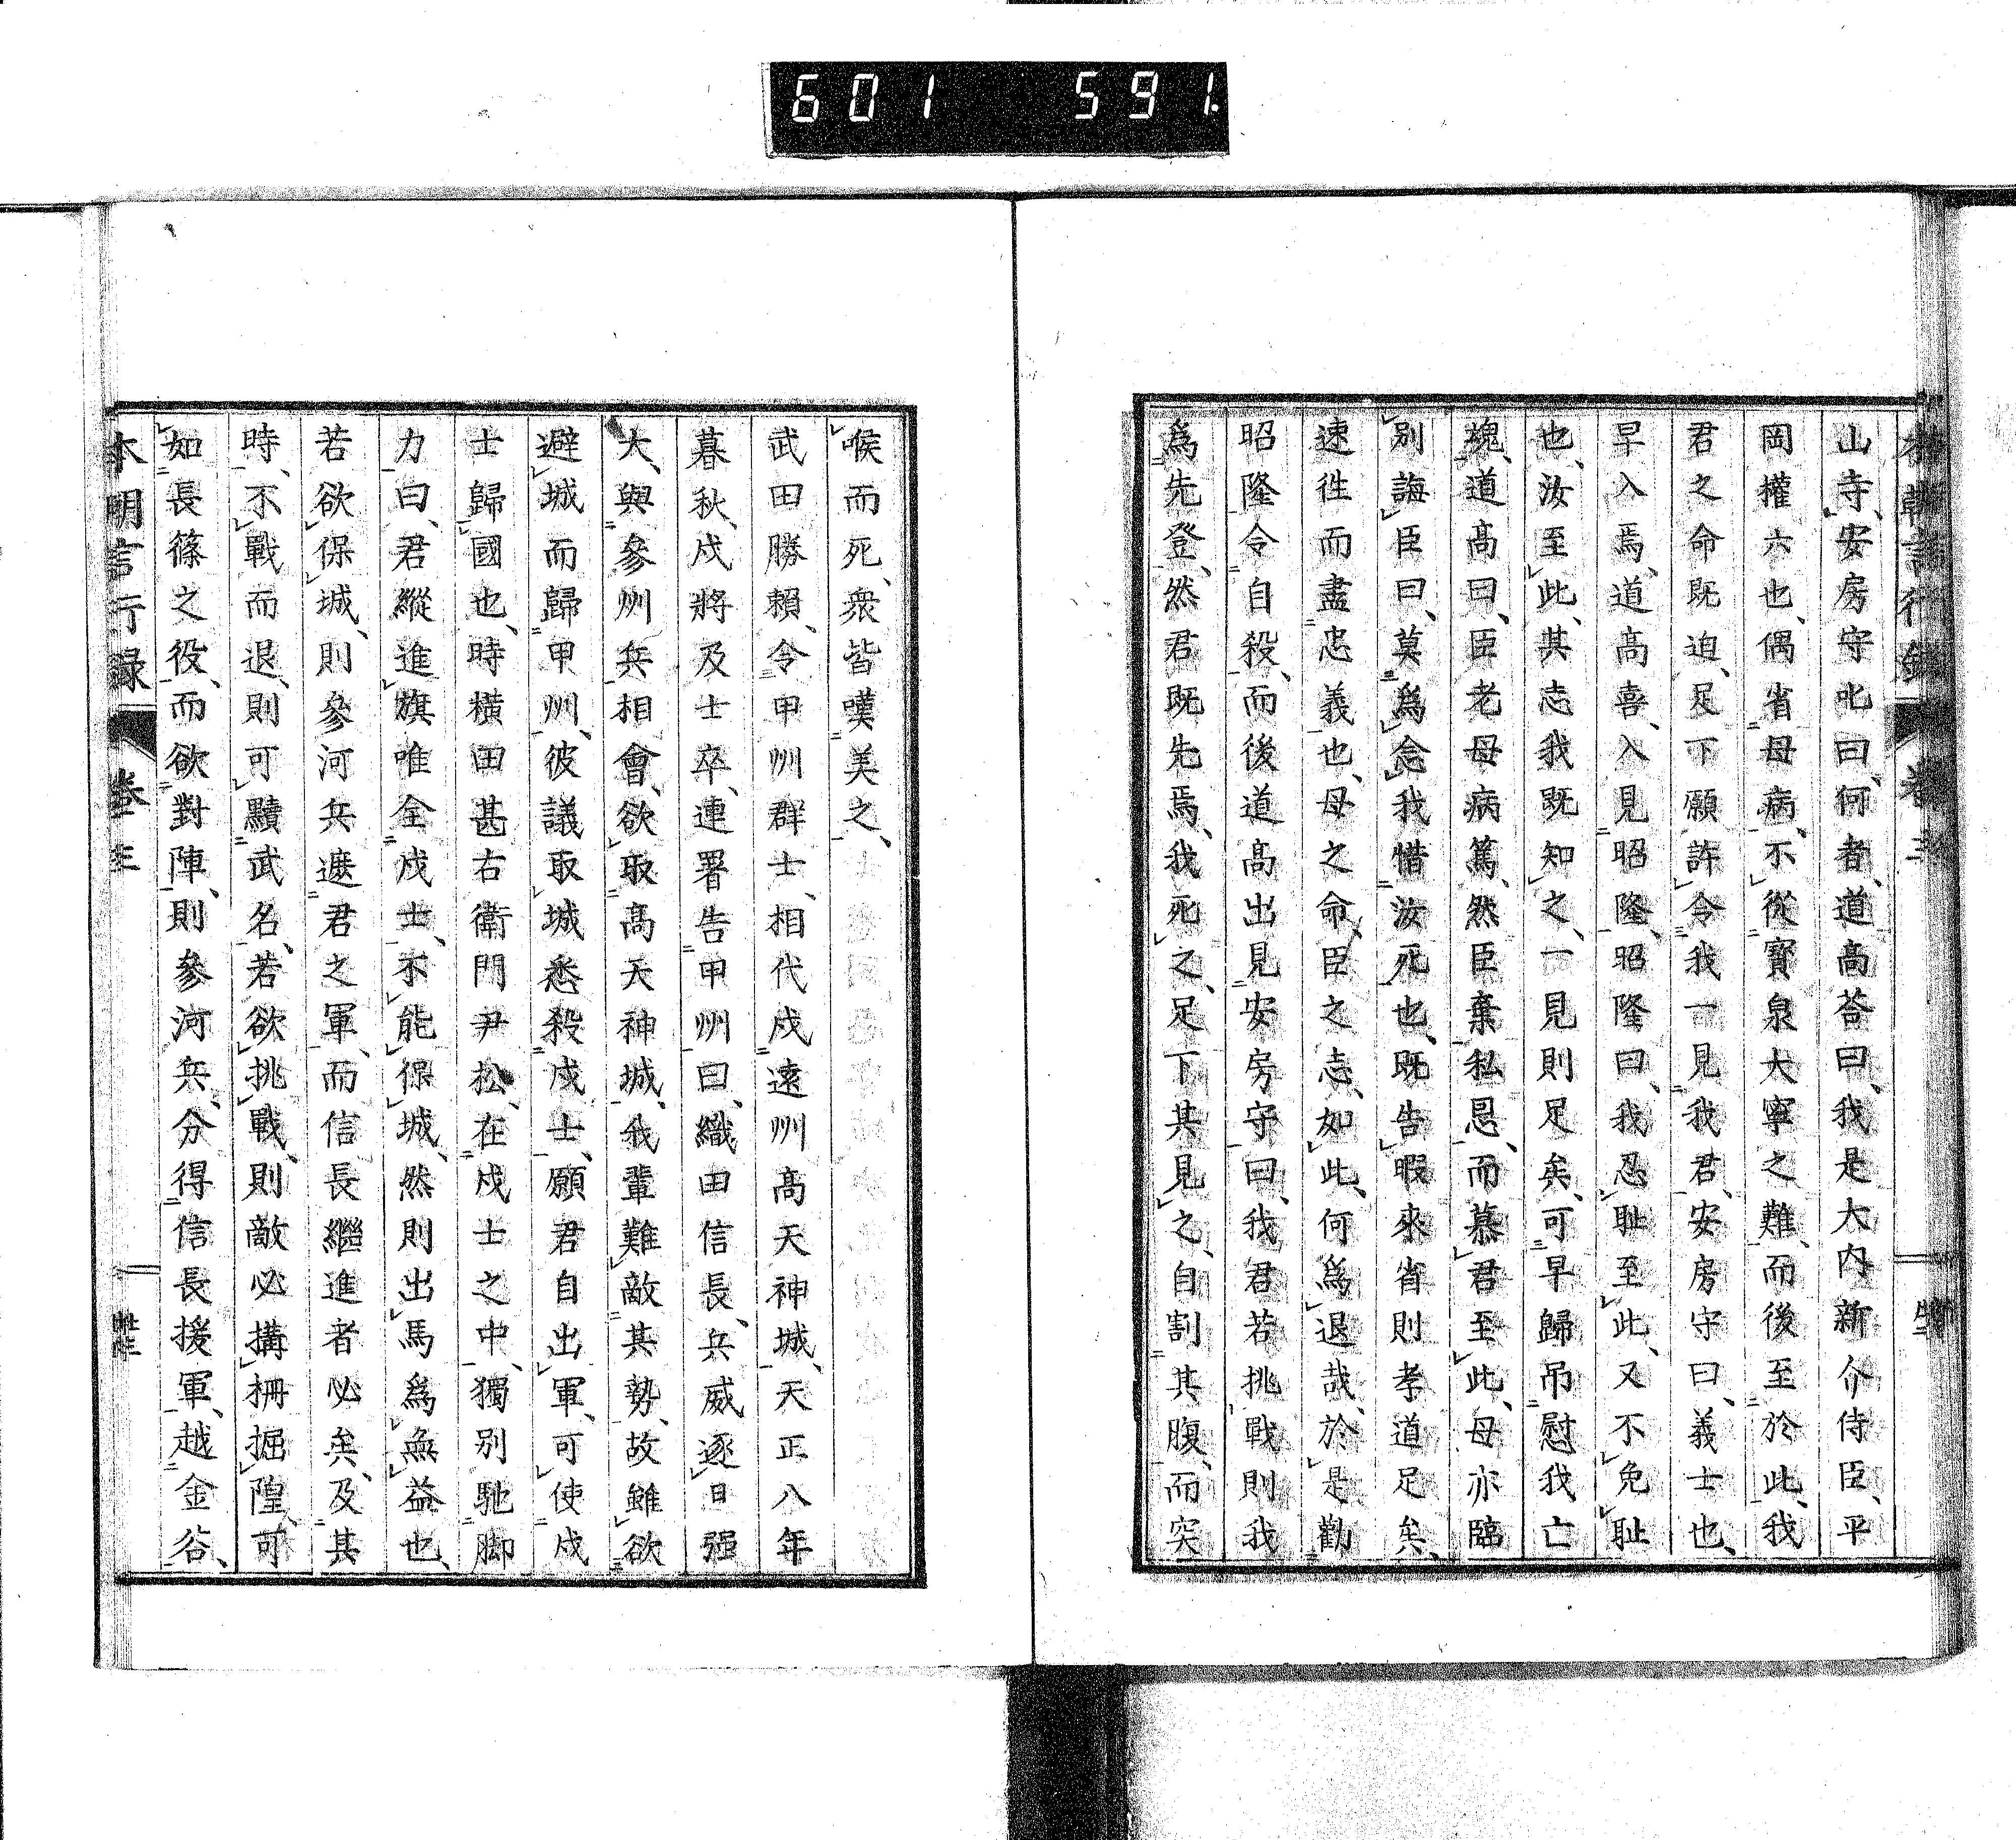 601 591.
山寺、安房守叱曰、何者、道高荅曰、我是大内新介侍臣、平
岡權六也、偶省母病、不從寶泉大寧之難、而後至於此、我
君之命既迫、足下願許令我一見我君、安房守曰、義士也、
早入焉、道高喜、入見昭隆、昭隆曰、我忍耻至此、又不免耻
也、汝至此、其志我既知之、一見則足矣、可早歸吊慰我亡
魂、道高曰、臣老母病篤、然臣棄私恩、而慕君至此、母亦臨
別誨臣曰、莫爲念我惜汝死也、既告暇來省則孝道足矣、
速徃而盡忠義也、母之命、臣之志、如此、何爲退哉、於是勸
昭隆令自殺、而後道高出見安房守曰、我君若挑戰則我
爲先登、然君既先焉、我死之、足下其見之、自割其腹、而突
喉而死、衆皆嘆美之、
武田勝賴、令甲州群士、相代戍遠州高天神城、天正八年
暮秋、戍將及士卒、連署告甲州曰、織田信長、兵威逐日强
大、與參州兵相會、欲取高天神城、我輩難敵其勢、故雖欲
避城而歸甲州、彼議取城悉殺戍士、願君自出軍、可使戍
士歸國也、時横田甚右衛門尹松、在戍士之中、獨別馳脚
力曰、君縱進旗唯全戍士、不能保城、然則出馬爲無益也、
若欲保城、則參河兵遮君之軍、而信長繼進者必矣、及其
時、不戰而退、則可黷武名、若欲挑戰、則敵必搆柵掘隍、可
如長篠之役、而欲對陣、則參河兵、分得信長援軍、越金谷、
本朝言行録 卷三